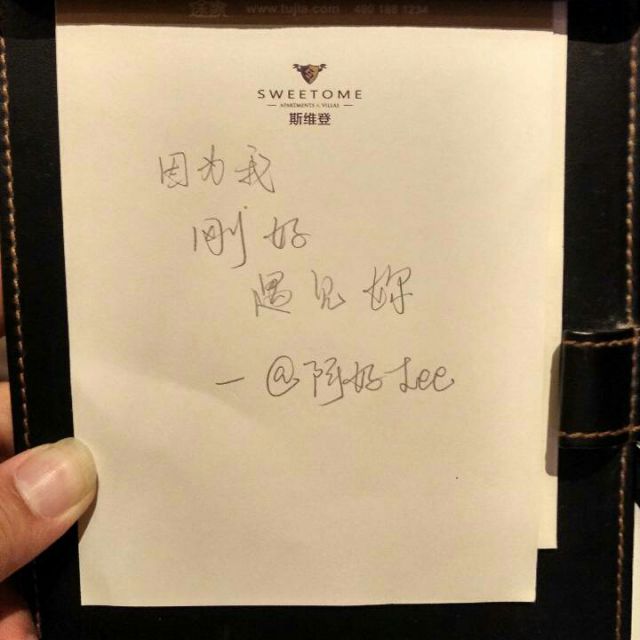 途家 www.tujia.com 400 188 1234
SWEETOME
APARTMENTS & VILLAS
斯维登
因为我
刚好
遇见妳
—@阿好Lee